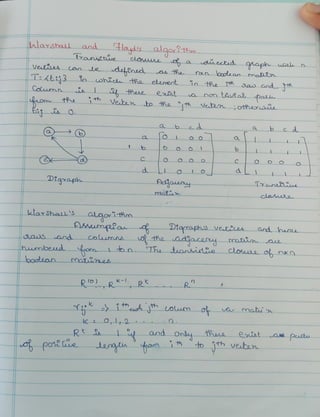 Warshall and Floyds algorithm
Transitive closure of a directed graph with n
vertices can be defined as the nxn boolean matrix
T = {tij} in which the element in the ith row and jth
column is 1 if there exist a non trivial path
from the ith vertex to the jth vertex, otherwise
tij is 0.
a b c d
a b c d
a b
a 0 1 0 0
a 1 1 1 1
b 0 0 0 1
b 1 1 1 1
c 0 0 0 0
c 0 0 0 0
c d
d 1 0 1 0
d 1 1 1 1
Digraph
Adjacency
matrix
Transitive
closure
Warshall's algorithm
Assumption of Digraphs vertices and hence
rows and columns of the adjacency matrix are
numbered from 1 to n. The transitive closure of nxn
boolean matrices
R(0), R k-1, Rk .... Rn
rijk => ith and jth column of matrix
k = 0,1,2 .... n
Rk is 1 if and only there exist path
of positive length from ith to jth vertex